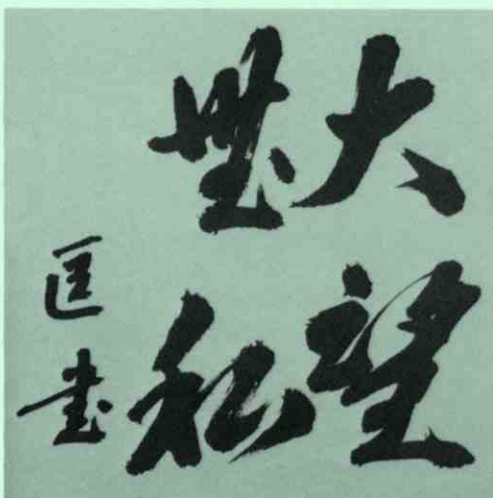 大望
無私
匡書